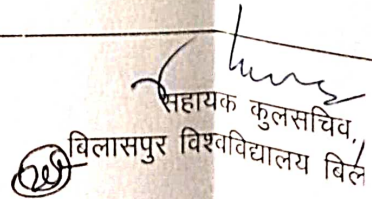 सहायक कुलसचिव,
बिलासपुर विश्वविद्यालय बिल